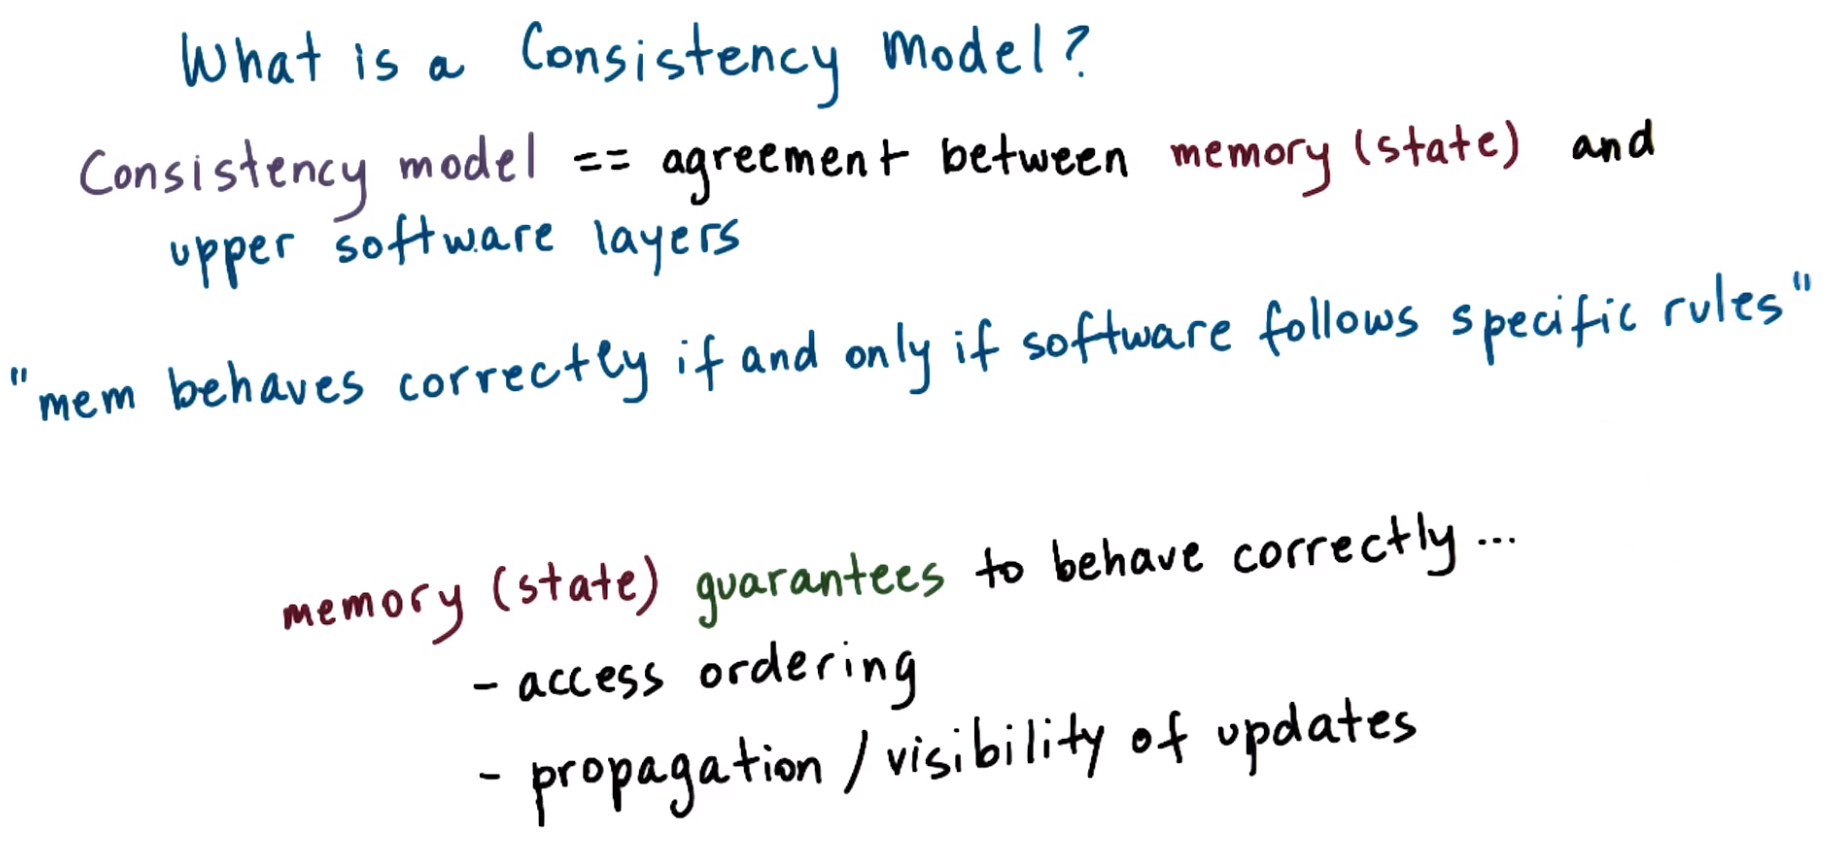 What is a Consistency Model?
Consistency model == agreement between memory (state) and
upper software layers
"mem behaves correctly if and only if software follows specific rules"
memory (state) guarantees to behave correctly...
- access ordering
- propagation / visibility of updates